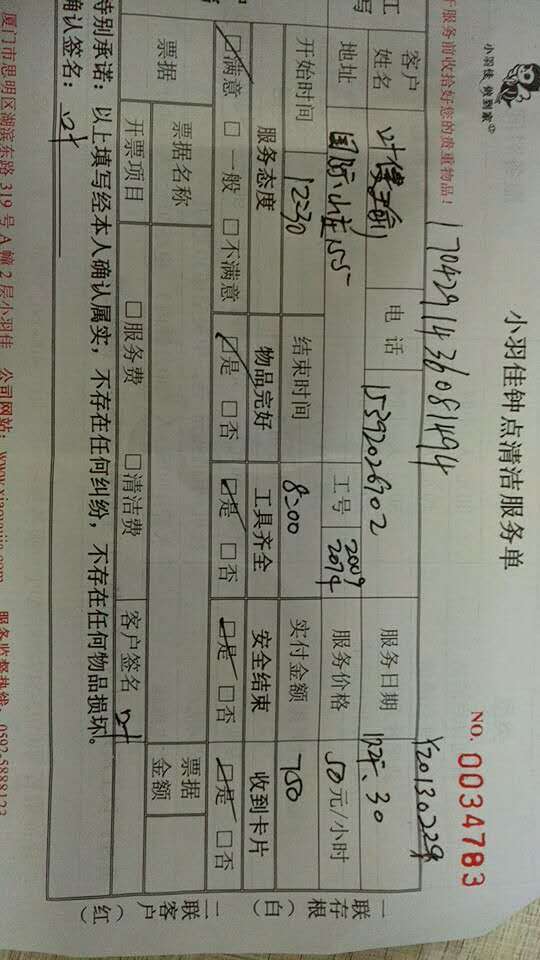 小羽佳 做到家
小羽佳钟点清洁服务单
NO. 0034783
服务前收拾好您的贵重物品！
17042911436081494
Y20130229
客户姓名 叶俊瑜 电话 15392026702 服务日期
地址 国际山庄155 工号 2009 2074 服务价格 50元/小时
开始时间 12:30 结束时间 8:00 实付金额 750
服务态度 物品完好 工具齐全 安全结束 收到卡片
☑满意 □一般 □不满意 ☑是 □否 ☑是 □否 ☑是 □否 ☑是 □否
票据 票据名称 票据金额
开票项目 □服务费 □清洁费 客户签名 叶
特别承诺：以上填写经本人确认属实，不存在任何纠纷，不存在任何物品损坏。
确认签名：叶
厦门市思明区湖滨东路 319 号 A 幢 2 层小羽佳 公司网站：www.xiaoyujia.com 服务监督热线：0592-5888123
一联存根（白）
二联客户（红）